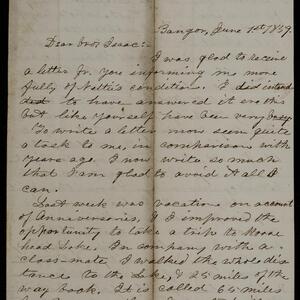 Bangor, June 1st, 1859.
Dear bro. Isaac:-
I was glad to receive
a letter fr. you informing me more
fully of Nettie's condition. I did intend
to have answered it ere this
but like yourself have been very busy.
To write a letter now seems quite
a task to me, in comparison with
years ago. I now write so much
that I am glad to avoid it all I
can.
Last week was vacation on account
of Anniversaries, & I improved the
opportunity to take a trip to Moose
head Lake. In company with a
class-mate I walked the whole dis
tance to the Lake, & 25 miles of the
way back. It is called 65 miles